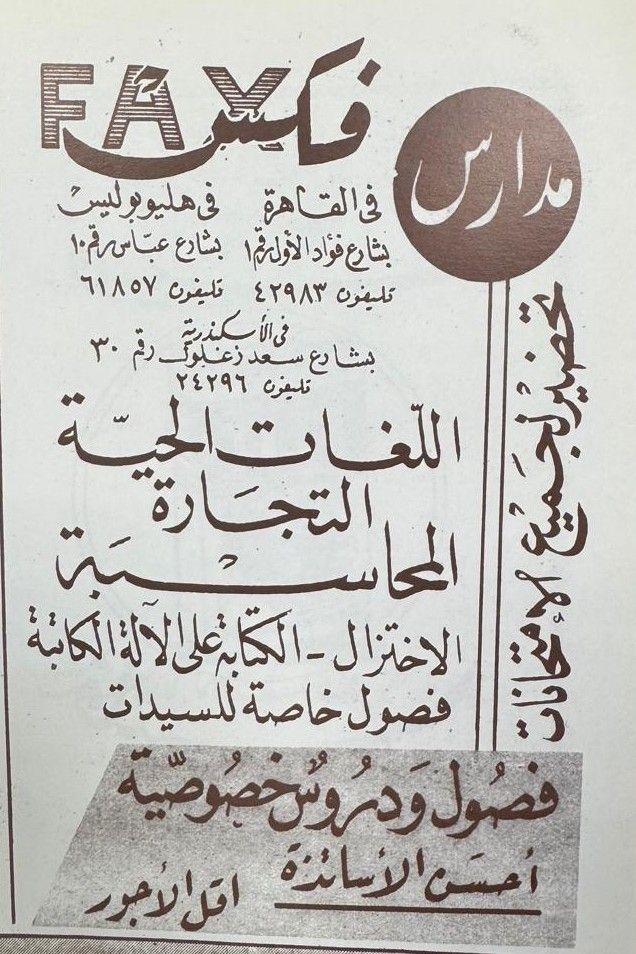 مدارس
فكس
FAX
في القاهرة
بشارع فؤاد الأول رقم ١
تليفون ٤٢٩٨٣
في هليوبوليس
بشارع عباس رقم ١٠
تليفون ٦١٨٥٧
في الأسكندرية
بشارع سعد زغلول رقم ٣٠
تليفون ٢٤٢٩٦
تحضير لجميع الإمتحانات
اللّغات الحيّة
التجارة
المحاسبة
الاختزال - الكتابة على الآلة الكاتبة
فصول خاصة للسيدات
فصُول ودرُوسٌ خصُوصيّة
أحسن الأساتذة
اقل الأجور